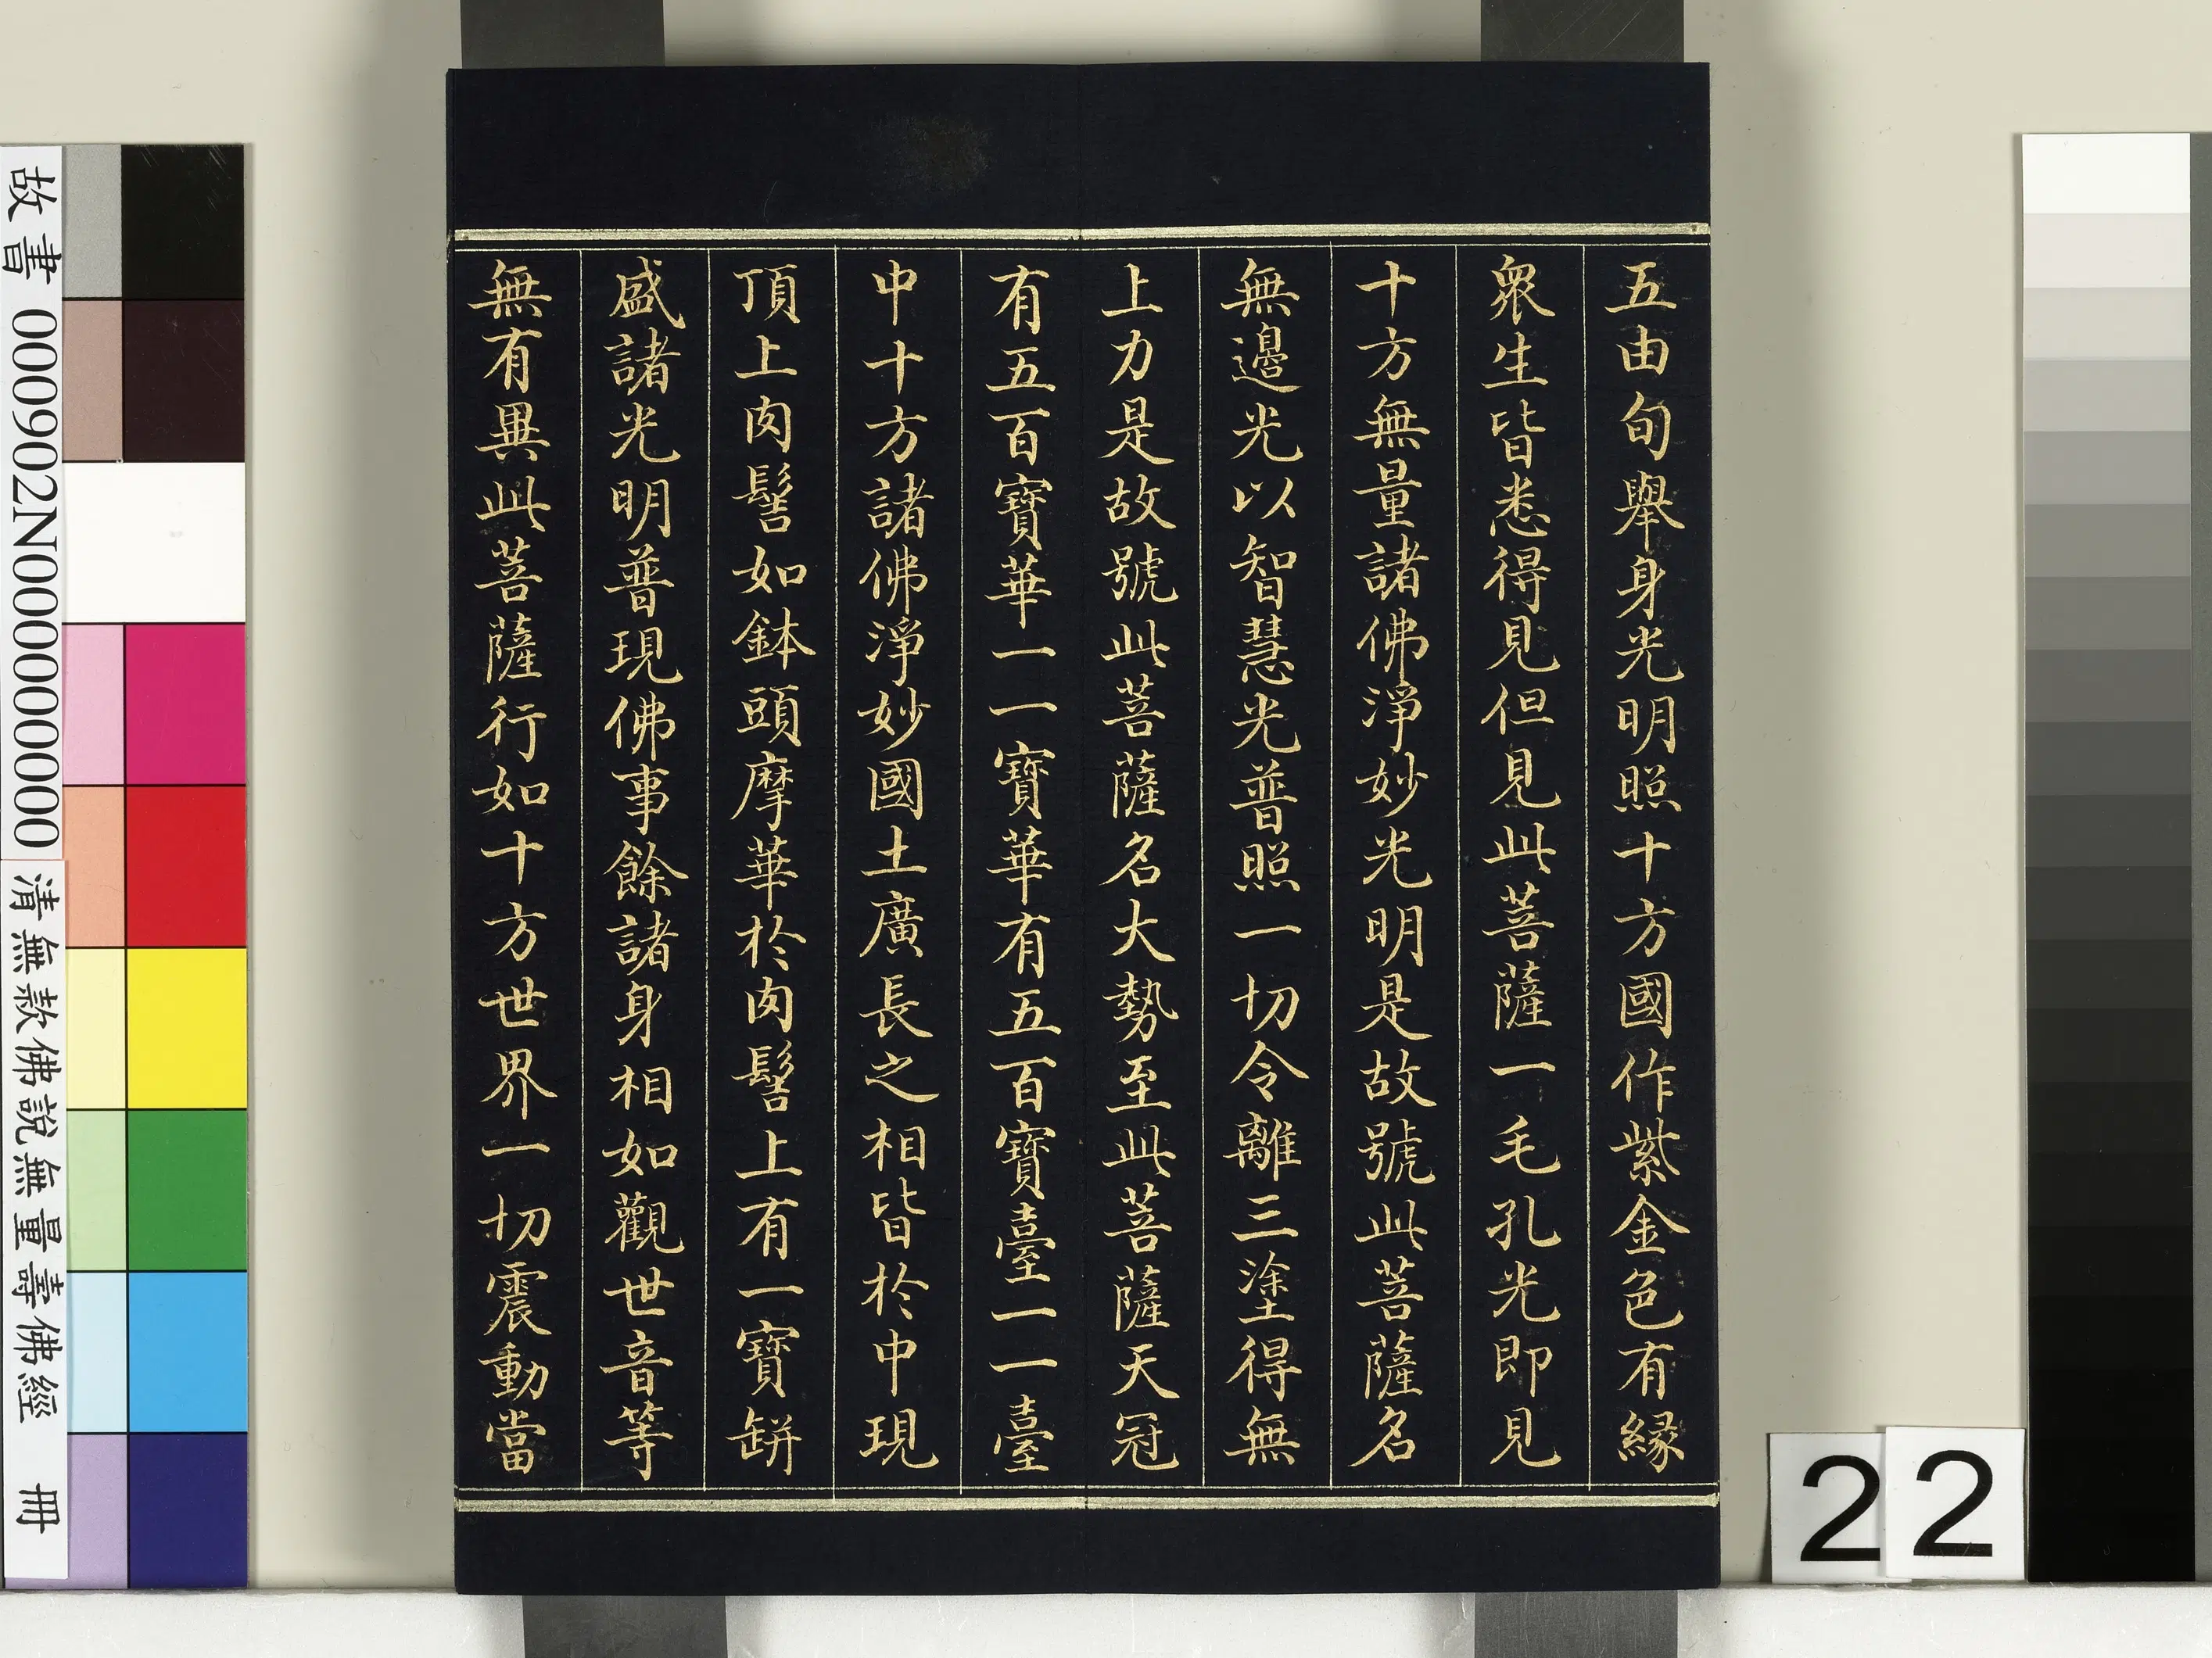 五由旬舉身光明照十方國作紫金色有緣
衆生皆悉得見但見此菩薩一毛孔光即見
十方無量諸佛淨妙光明是故號此菩薩名
無邊光以智慧光普照一切令離三塗得無
上力是故號此菩薩名大勢至此菩薩天冠
有五百寶華一一寶華有五百寶臺一一臺
中十方諸佛淨妙國土廣長之相皆於中現
頂上肉髻如鉢頭摩華於肉髻上有一寶缾
盛諸光明普現佛事餘諸身相如觀世音等
無有異此菩薩行如十方世界一切震動當
故書 000902N000000000
清無款佛說無量壽佛經 冊
22